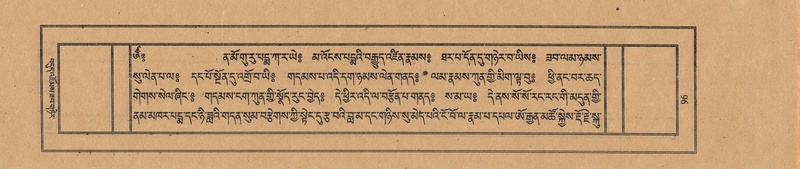 ༄༅༔ ན་མོ་གུ་རུ་པདྨ་ཀ་ར་ཡེ༔ མ་འོངས་པདྨའི་བརྒྱུད་འཛིན་རྣམས༔ ཐར་པ་དོན་དུ་གཉེར་བ་ཡིས༔ ཟབ་ལམ་ཉམས་
སུ་ལེན་པ་ལ༔ དང་པོ་སྔོན་དུ་འགྲོ་བ་ཡི༔ གདམས་པ་འདི་དག་ཉམས་ལེན་གནད༔ ལམ་རྣམས་ཀུན་གྱི་མིག་ལྟ་བུ༔ ཕྱི་ནང་བར་ཆད་
གེགས་སེལ་ཞིང་༔ གདམས་ངག་ཀུན་གྱི་སྣོད་རུང་བྱེད༔ དེ་ཕྱིར་འདི་ལ་བརྩོན་པ་གནད༔ ས་མ་ཡ༔ དེ་ནས་སོ་སོ་རང་རང་གི་མདུན་གྱི་
ནམ་མཁར་པདྨ་དང་ཉི་ཟླའི་གདན་སུམ་བརྩེགས་ཀྱི་སྟེང་དུ་རྩ་བའི་བླ་མ་དང་གཉིས་སུ་མེད་པའི་ངོ་བོ་ལ་རྣམ་པ་དཔལ་ཨོ་རྒྱན་མཚོ་སྐྱེས་རྡོ་རྗེ་སྐུ་
96